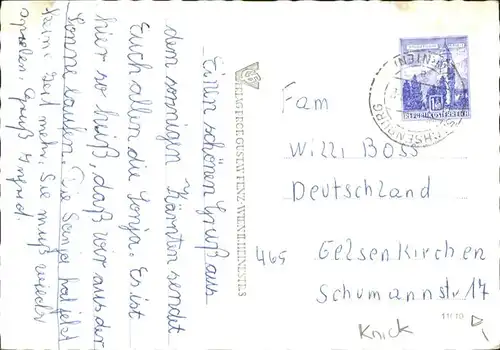 Einen schönen Gruß aus
dem sonnigen Kärnten sendet
Euch allen die Sonja. Es ist
hier so heiß, daß wir aus der
Sonne laufen. Die Sonja hat jetzt
keine Zeit mehr, Sie muß wieder
Gruß Ingrid.
Fam
Willi Boss
Deutschland
465 Gelsenkirchen
Schumannstr 17
11/10
Knick
REPUBLIK ÖSTERREICH